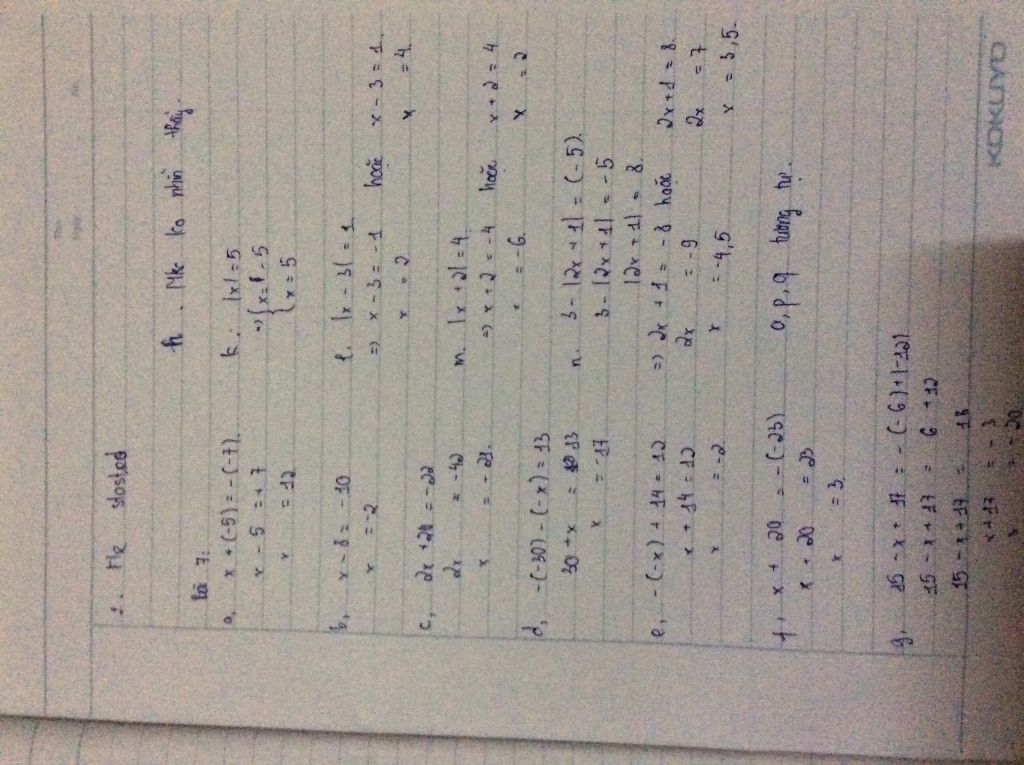 2. He started
Bài 7:
a, x + (-5) = -(-7).
x - 5 = +7
x = 12
b, x - 8 = -10
x = -2
c, 2x + 20 = -22
2x = -42
x = -21.
d, -(-30) - (-x) = 13
30 + x = 13
x = -17
e, -(-x) + 14 = 12
x + 14 = 12
x = -2
f, x + 20 = -(-23)
x + 20 = 23
x = 3
g, 15 - x + 17 = -(-6) + |-12|
15 - x + 17 = 6 + 12
15 - x + 17 = 18
x + 17 = -3
x = -20.
h. Mk ko nhìn thấy.
k. |x| = 5
=> { x = -5
{ x = 5
l. |x - 3| = 1
=> x - 3 = -1 hoặc x - 3 = 1.
x = 2 x = 4.
m. |x + 2| = 4
=> x + 2 = -4 hoặc x + 2 = 4
x = -6. x = 2
n. 3 - |2x + 1| = (-5).
3 - |2x + 1| = -5
|2x + 1| = 8.
=> 2x + 1 = -8 hoặc 2x + 1 = 8.
2x = -9 2x = 7
x = -4,5 x = 3,5.
o, p, q tương tự.
KOKUYO